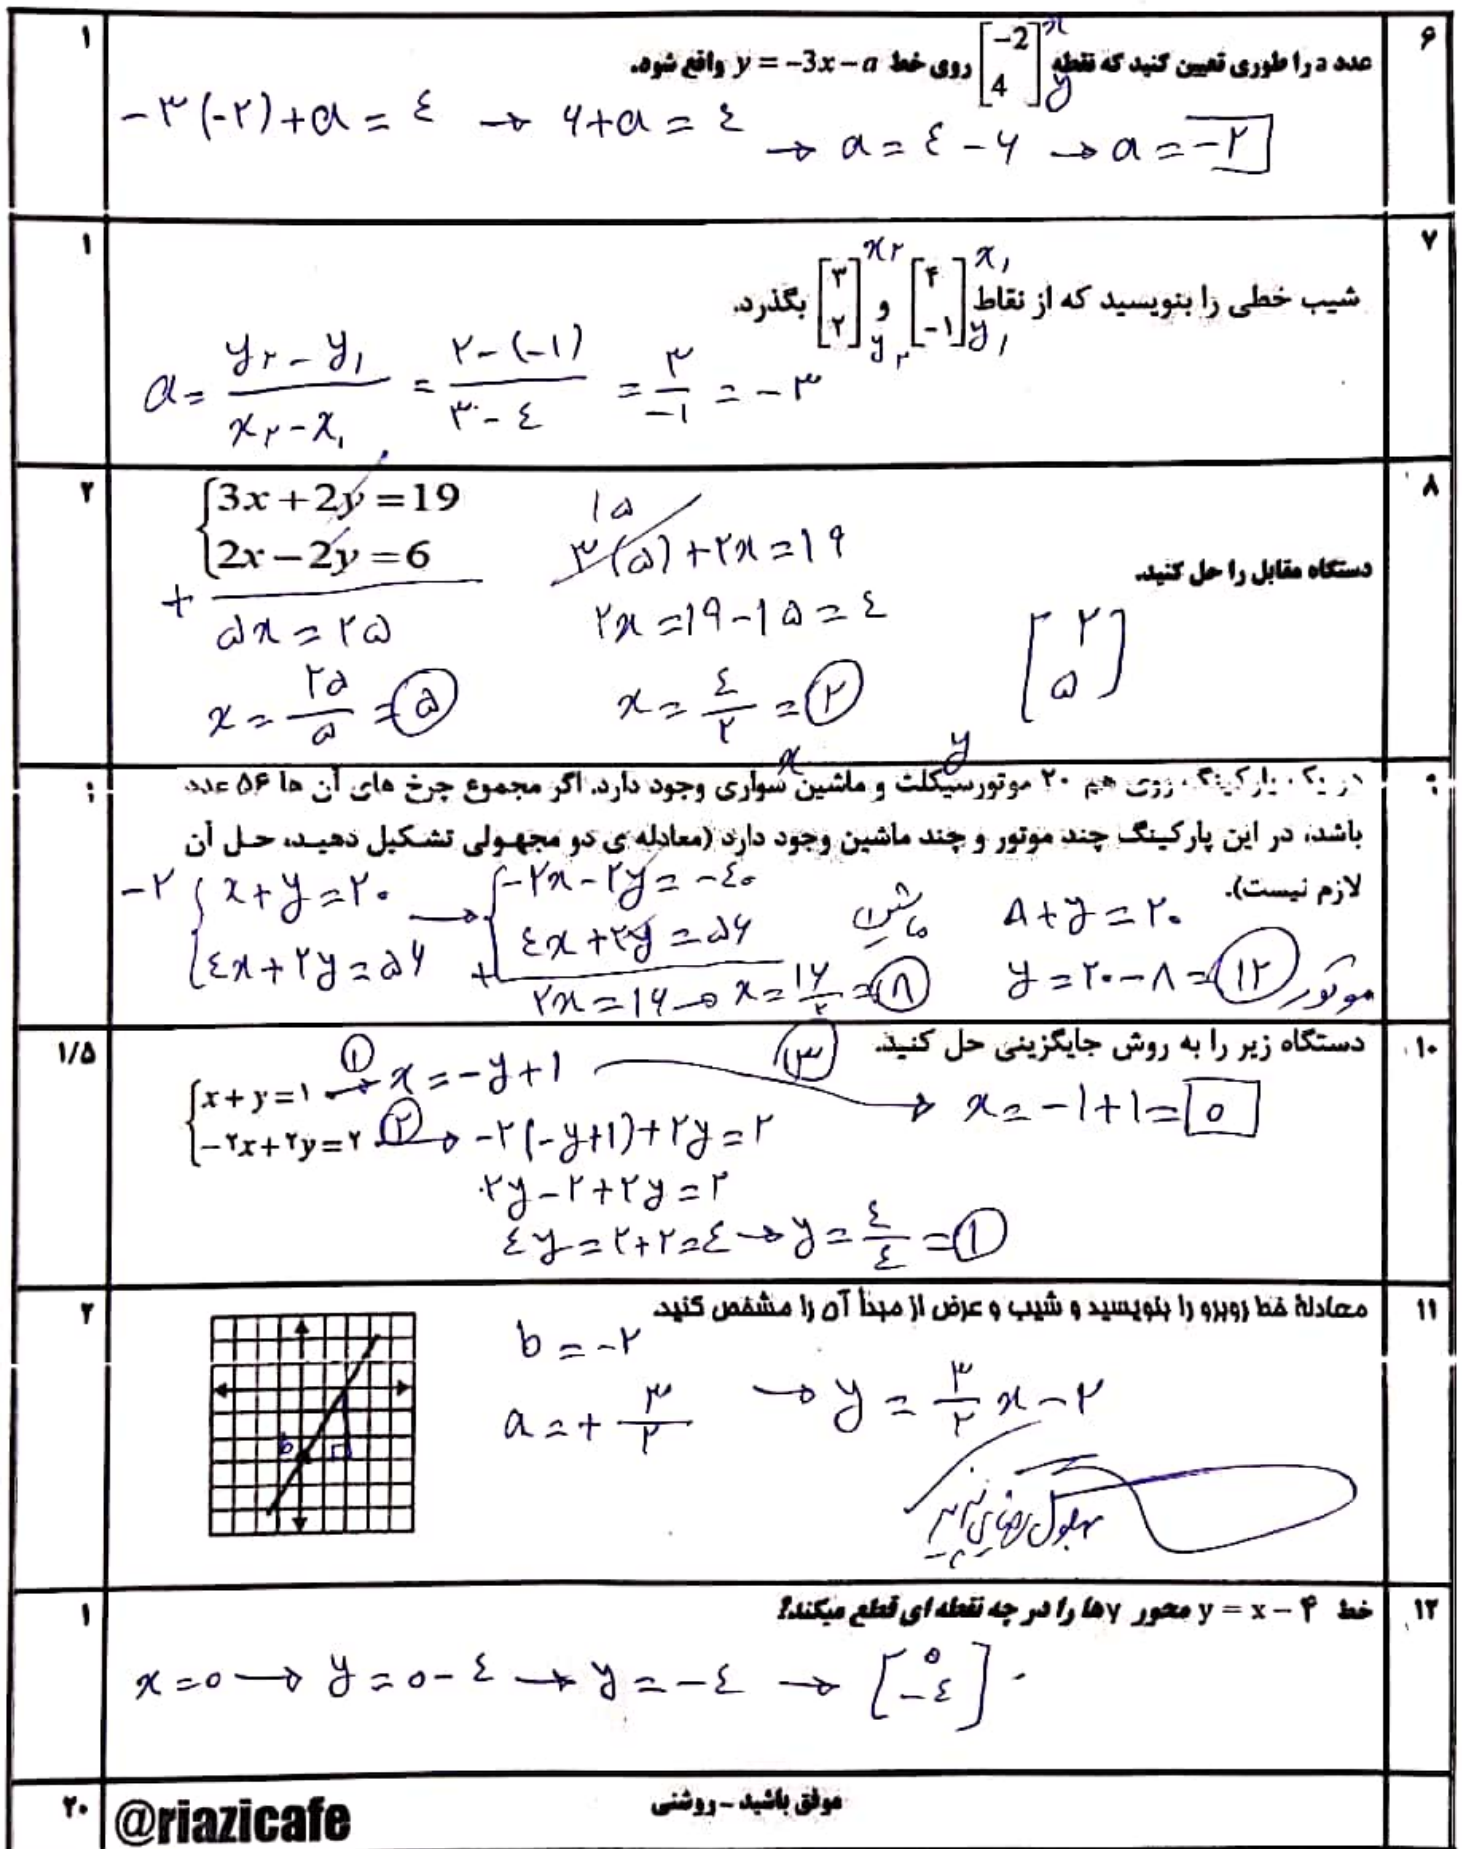 ۶
عدد a را طوری تعیین کنید که نقطه [-2 4] x y روی خط y = -3x - a واقع شود.
۱
-۳(-۲)+a = ٤ → ۶+a = ٤
→ a = ٤ - ۶ → a = -۲
۷
شیب خطی را بنویسید که از نقاط [۴ -۱] x₁ y₁ و [۳ ۲] x۲ y۲ بگذرد.
۱
a = (y۲ - y₁)/(x۲ - x₁) = (۲-(-۱))/(۳-٤) = ۳/-۱ = -۳
۸
دستگاه مقابل را حل کنید.
۲
3x + 2y = 19
2x - 2y = 6
+
۵x = ۲۵
x = ۲۵/۵ = ۵
۱۵
۳(۵)+۲x = ۱۹
۲x = ۱۹-۱۵ = ٤
x = ٤/۲ = ۲
[۲ ۵]
x y
در یک پارکینگ روی هم ۲۰ موتورسیکلت و ماشین سواری وجود دارد. اگر مجموع چرخ های آن ها ۵۶ عدد
باشد، در این پارکینگ چند موتور و چند ماشین وجود دارد (معادله ی دو مجهولی تشکیل دهید، حل آن
لازم نیست).
-۲ { x + y = ۲۰ → { -۲x - ۲y = -٤۰
٤x + ۲y = ۵۶ + ٤x + ۲y = ۵۶
۲x = ۱۶ → x = ۱۶/۲ = ۸ ماشین
۸ + y = ۲۰
y = ۲۰ - ۸ = ۱۲ موتور
۱۰
دستگاه زیر را به روش جایگزینی حل کنید.
۱/۵
x + y = ۱ ① → x = -y + ۱ ③ → x = -۱+۱ = ۰
-۲x + ۲y = ۲ ② → -۲(-y+۱)+۲y = ۲
۲y - ۲ + ۲y = ۲
٤y = ۲+۲ = ٤ → y = ٤/٤ = ۱
۱۱
معادلهٔ خط روبرو را بنویسید و شیب و عرض از مبدأ آن را مشخص کنید.
۲
b
b = -۲
a = + ۳/۲ → y = ۳/۲ x - ۲
۱۲
خط y = x - ۴ محور yها را در چه نقطه ای قطع میکند؟
۱
x = ۰ → y = ۰ - ٤ → y = -٤ → [۰ -٤]
موفق باشید - روشنی
۲۰
@riazicafe